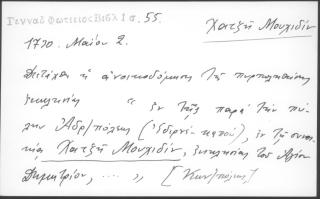 Γενναδ Φωτιειος Βιβλ 1 σ. 55.
Χατζῆ Μουχιδὶν
1730. Μαίου 2.
Διετάχθη ἡ ἀνοικοδόμησις τῆς πυρποληθείσης
ἐκκλησίας " ἐν τῆς παρὰ τὴν πύ-
λην Ἀδρ/πόλεως (Ἐδιρνὲ καποὺ), ἐν τῇ συνοι-
κίᾳ Χατζῆ Μουχιδὶν, ἐκκλησίας τοῦ Ἁγίου
Δημητρίου, .... " [Κων/πόλεως]